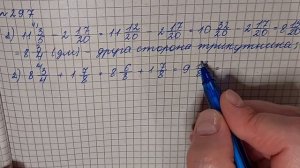 № 297
1) 11 3/5 - 2 17/20 = 11 12/20 - 2 17/20 = 10 32/20 - 2 17/20 = 8 15/20 =
= 8 3/4 (дм) - друга сторона трикутника;
2) 8 3/4 + 1 7/8 = 8 6/8 + 1 7/8 = 9